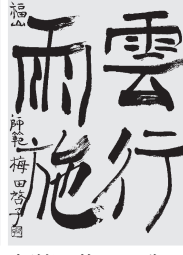 雲行
雨施
福山
師範 梅田啓子